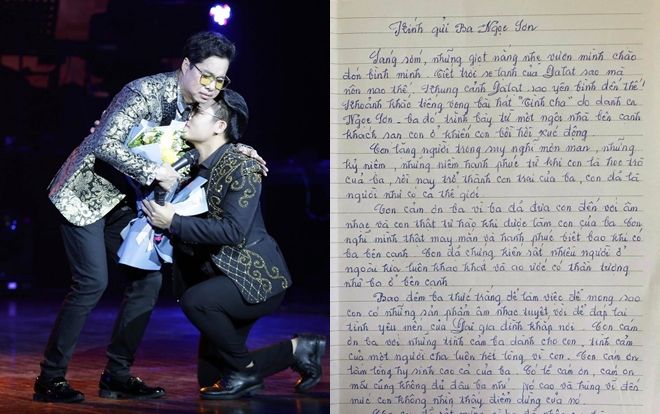 Kính gửi Ba Ngọc Sơn
Sáng sớm, những giọt nắng nhẹ vươn mình chào
đón bình minh. Tiết trời se lạnh của Dalat sao mà
nên nao thế. Khung cảnh Dalat sao yên bình đến thế!
Khoảnh khắc tiếng vọng bài hát "Tình cha" do danh ca
Ngọc Sơn - ba do trình bày từ một ngôi nhà bên cạnh
khách sạn con ở khiến con bồi hồi xúc động.
Con lặng người trong suy nghĩ mơn man, những
kỷ niệm, những niềm hạnh phúc từ khi con là học trò
của ba, rồi nay trở thành con trai của ba, con đã là
người như có cả thế giới.
Con cảm ơn ba vì ba đã đưa con đến với âm
nhạc và con thật tự hào khi được làm con của ba. Con
nghĩ mình thật may mắn và hạnh phúc biết bao khi có
ba bên cạnh. Con đã chứng kiến rất nhiều người ở
ngoài kia luôn khao khát và ao ước có thần tượng
như ba ở bên cạnh
Bao đêm ba thức trắng để làm việc để mong sao
con có những sản phẩm âm nhạc tuyệt vời để đáp lại
tình yêu mến của Đại gia đình khắp nơi. Con cảm
ơn ba với những tình cảm ba dành cho con, tình cảm
của một người cha luôn hết lòng vì con. Con cảm ơn
tấm lòng hy sinh cao cả của ba. Có lẽ cảm ơn, cảm ơn
mãi cũng không đủ đâu ba nhỉ. Nó cao và hùng vĩ đến
mức con không nhìn thấy điểm dừng của nó.